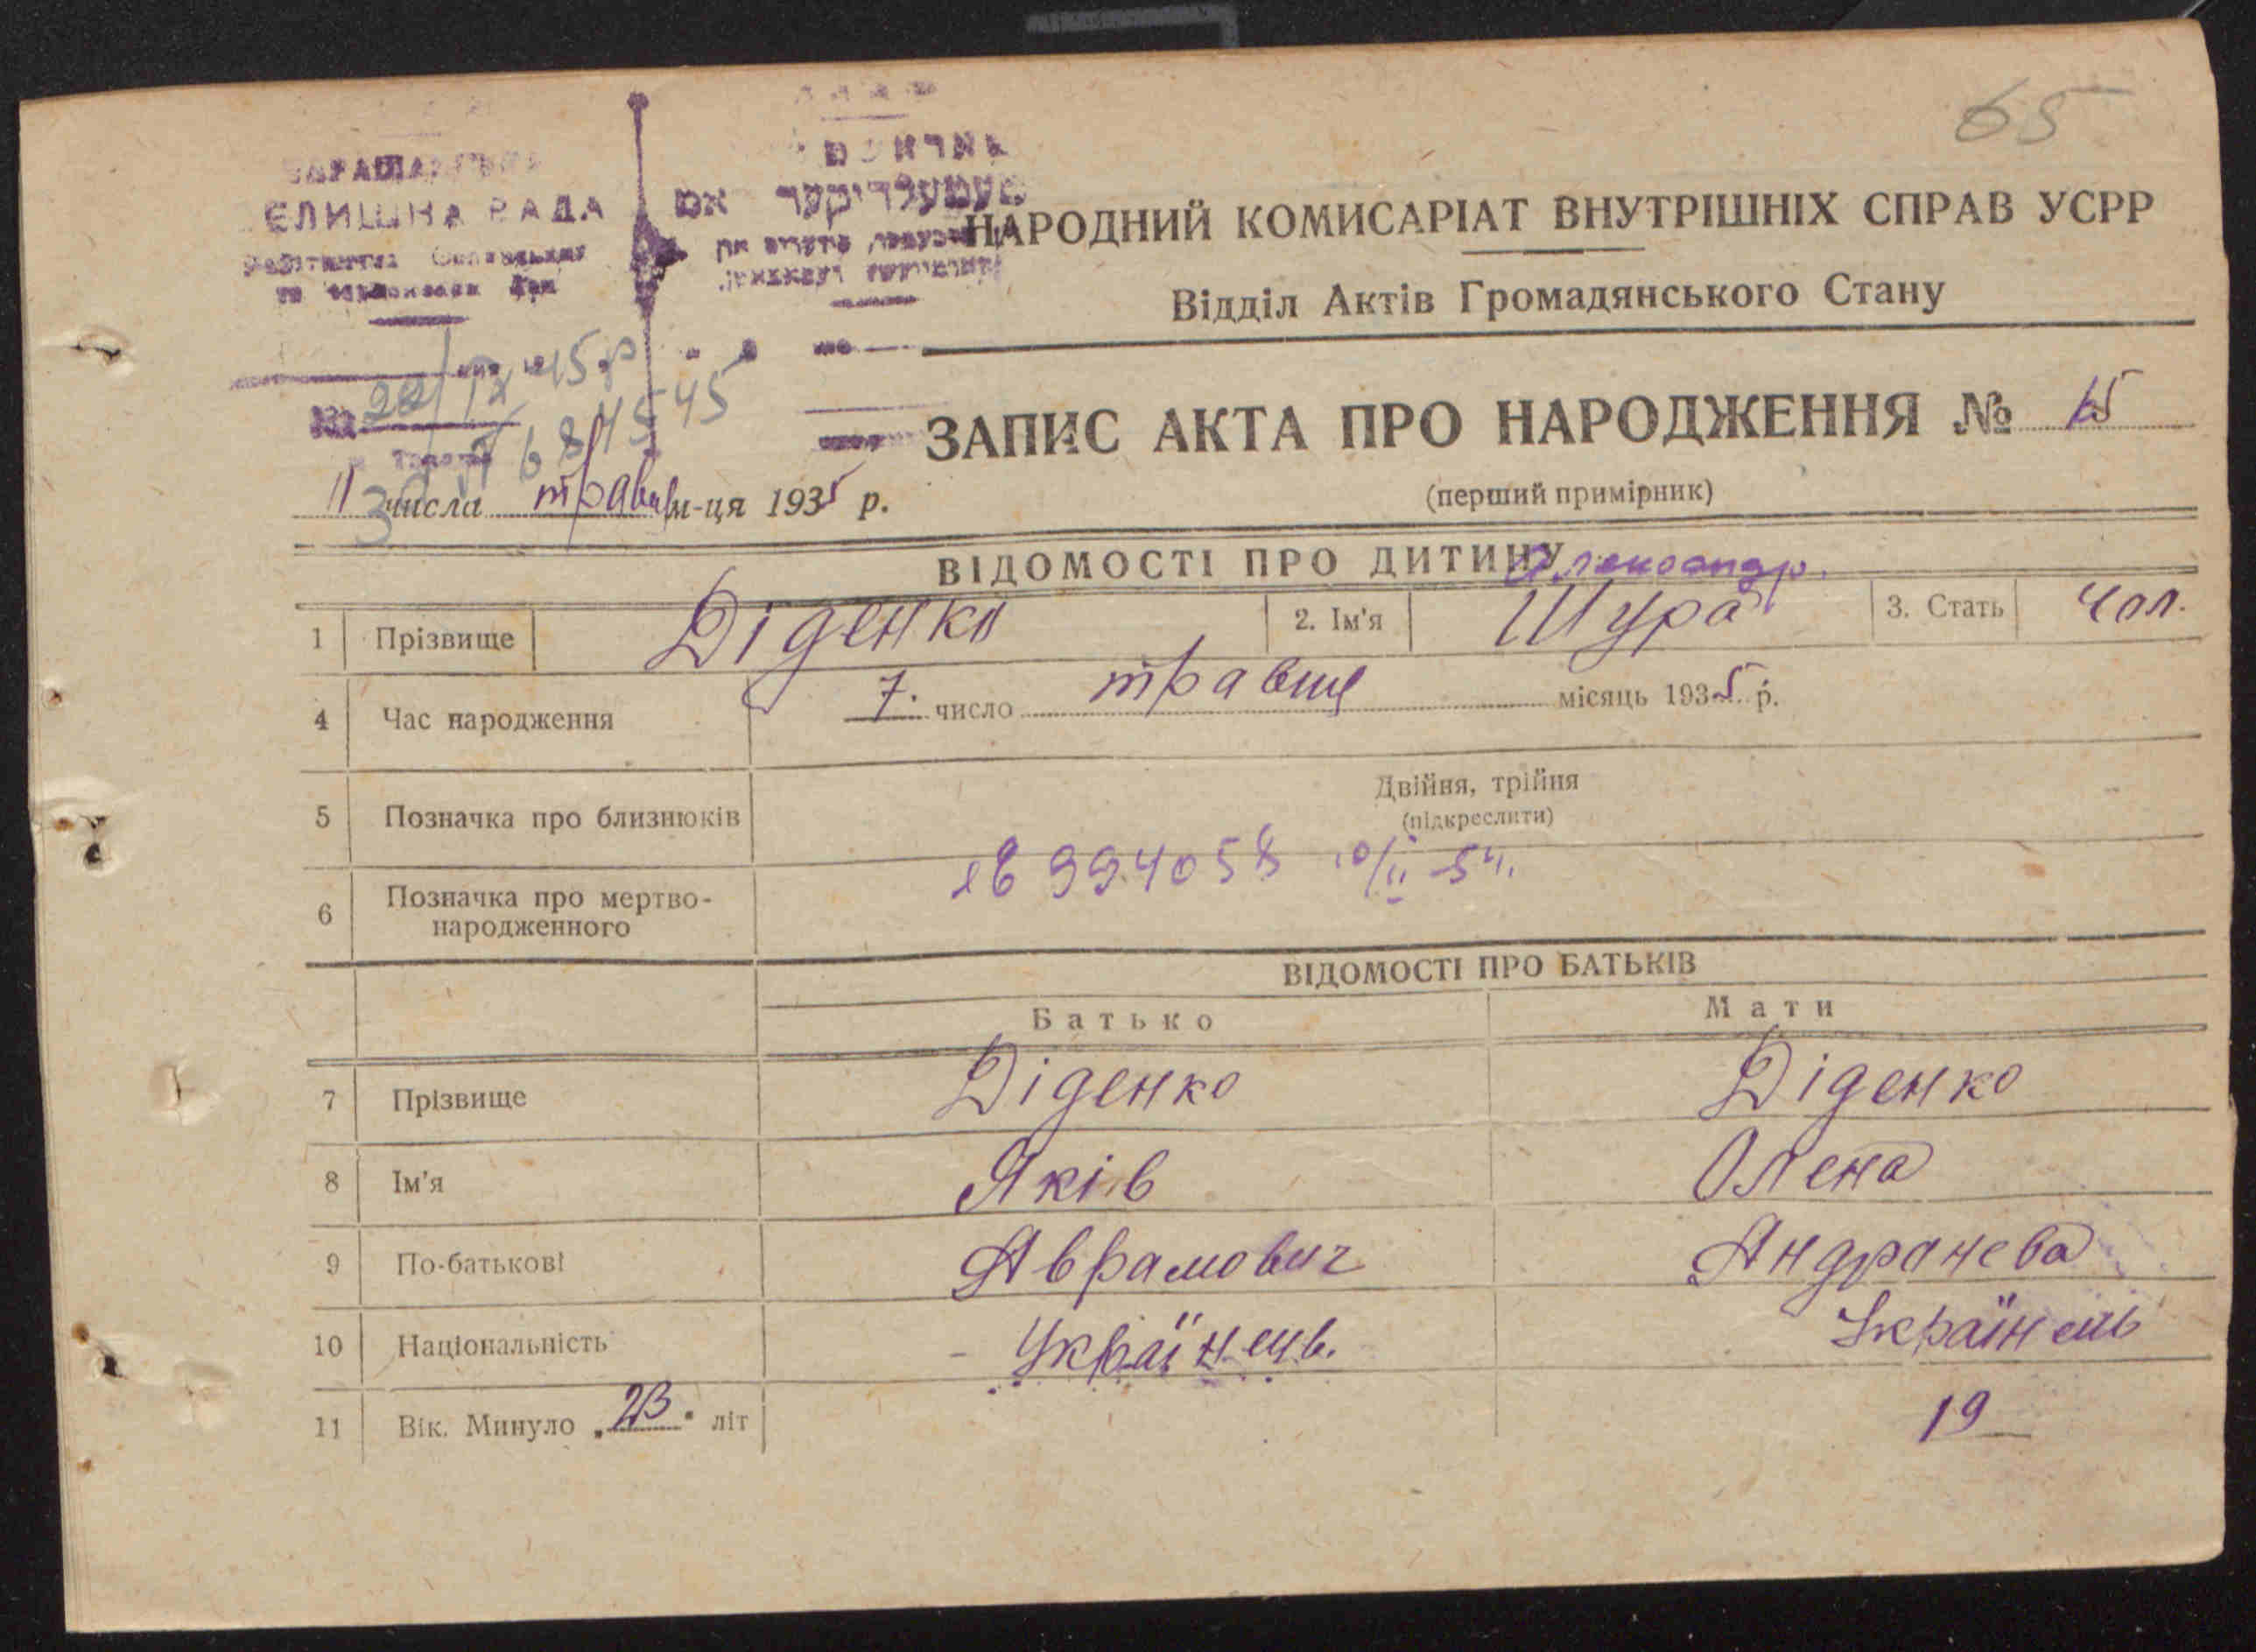 65
ЕЛИШНА РАДА
НАРОДНИЙ КОМИСАРІАТ ВНУТРІШНІХ СПРАВ УСРР
Відділ Актів Громадянського Стану
ЗАПИС АКТА ПРО НАРОДЖЕННЯ №
(перший примірник)
11 числа травня м-ця 1935 р.
ВІДОМОСТІ ПРО ДИТИНУ
Александр.
1 Прізвище Діденко 2. Ім'я Шура 3. Стать чол.
4 Час народження 7. число травня місяць 1935 р.
5 Позначка про близнюків Двійня, трійня
(підкреслити)
994058 10/II 54.
6 Позначка про мертво-
народженного
ВІДОМОСТІ ПРО БАТЬКІВ
Батько Мати
7 Прізвище Діденко Діденко
8 Ім'я Яків Олена
9 По-батькові Аврамович
10 Національність Українець. Українець
11 Вік. Минуло 23 літ 19